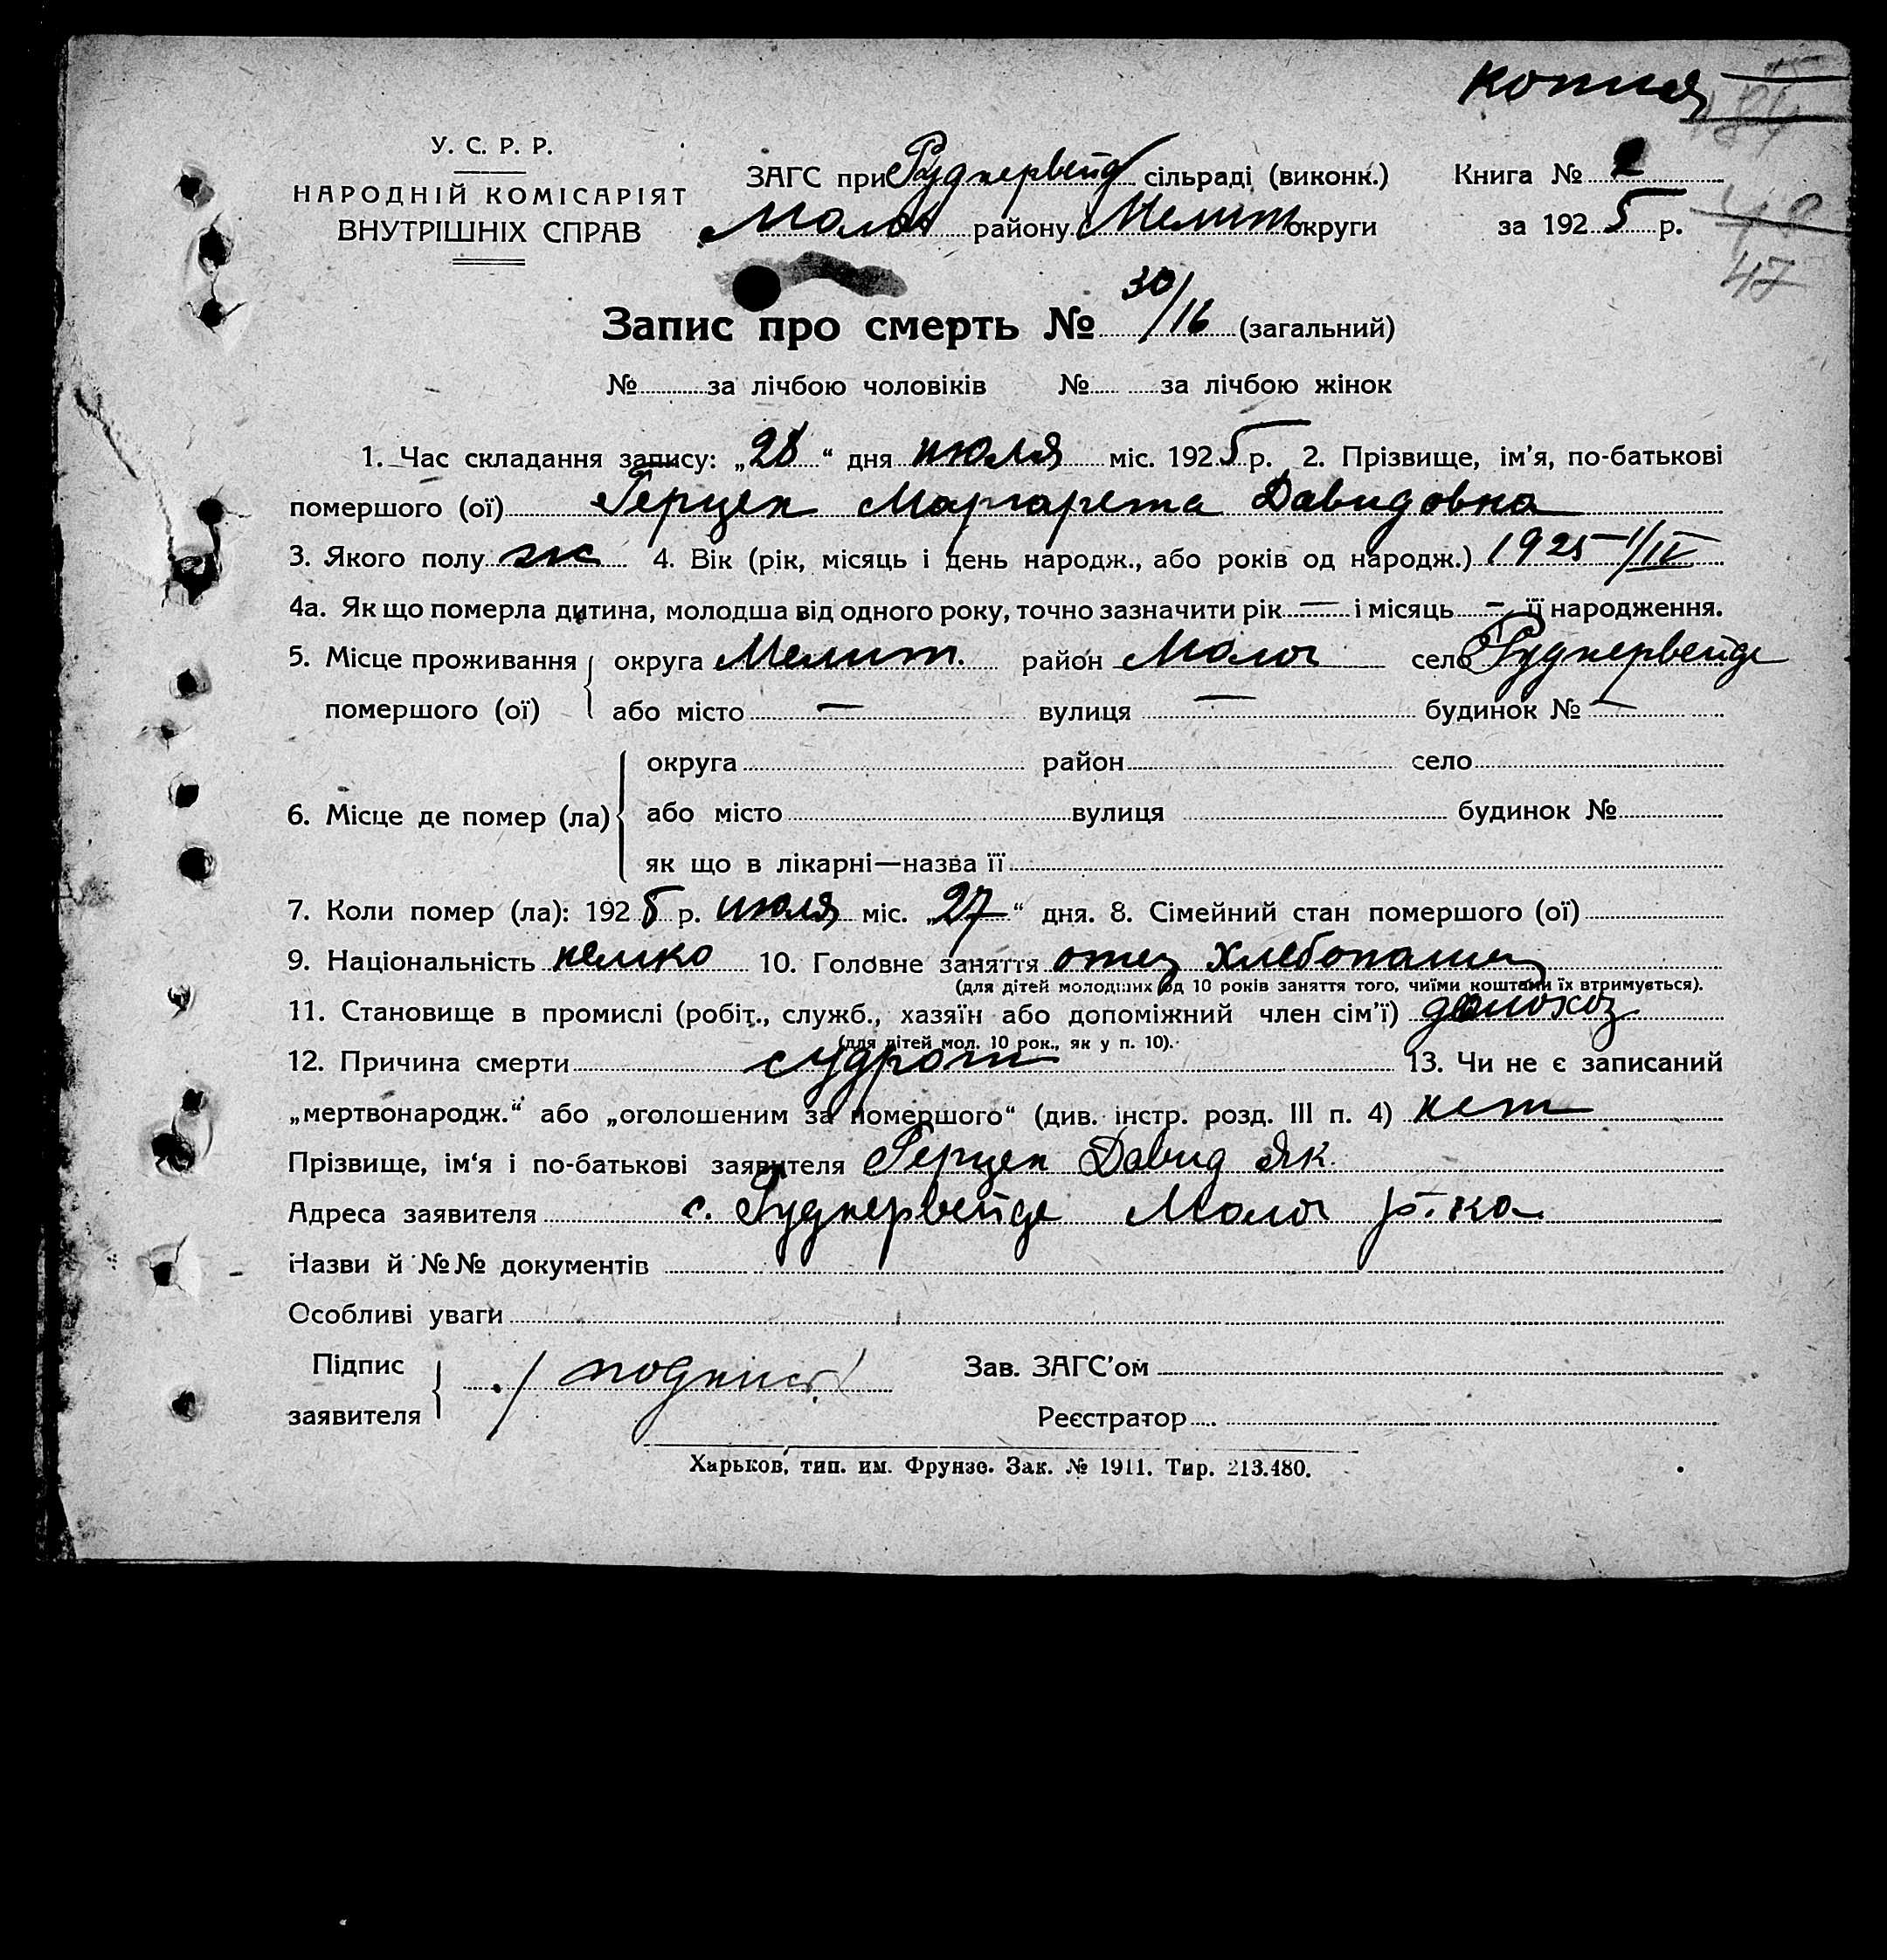 копия
У. С. Р. Р.
НАРОДНІЙ КОМІСАРІЯТ
ВНУТРІШНІХ СПРАВ
ЗАГС при Рудчервейд сільраді (виконк.)
Молоч району Мелит округи
Книга № 2
за 1925 р.
47
Запис про смерть № 30/16 (загальний)
№ за лічбою чоловіків № за лічбою жінок
1. Час складання запису: „28“ дня июля міс. 1925 р. 2. Прізвище, ім'я, по-батькові
помершого (ої) Герцен Маргарета Давидовна
3. Якого полу ж 4. Вік (рік, місяць і день народж., або років од народж.) 1925 – 1/IV
4а. Як що померла дитина, молодша від одного року, точно зазначити рік — і місяць – її народження.
5. Місце проживання округа Мелит. район Молоч село
помершого (ої) або місто — вулиця — будинок № —
округа район село
6. Місце де помер (ла) або місто вулиця будинок №
як що в лікарні—назва її
7. Коли помер (ла): 1925 р. июля міс. „27“ дня. 8. Сімейний стан помершого (ої)
9. Національність немка 10. Головне заняття отец хлебопашец
(для дітей молодших од 10 років заняття того, чиїми коштами їх втримується).
11. Становище в промислі (робіт., служб., хазяїн або допоміжний член сім'ї) домохоз
(для дітей мол. 10 рок., як у п. 10).
12. Причина смерти судрот 13. Чи не є записаний
„мертвонародж.“ або „оголошеним за помершого“ (див. інстр. розд. III п. 4) нет
Прізвище, ім'я і по-батькові заявителя Герцен Давид Як.
Адреса заявителя с. Молоч р-на
Назви й №№ документів
Особливі уваги
Підпис
заявителя / подпись /
Зав. ЗАГС'ом
Реєстратор
Харьков, тип. им. Фрунзе. Зак. № 1911. Тир. 213.480.